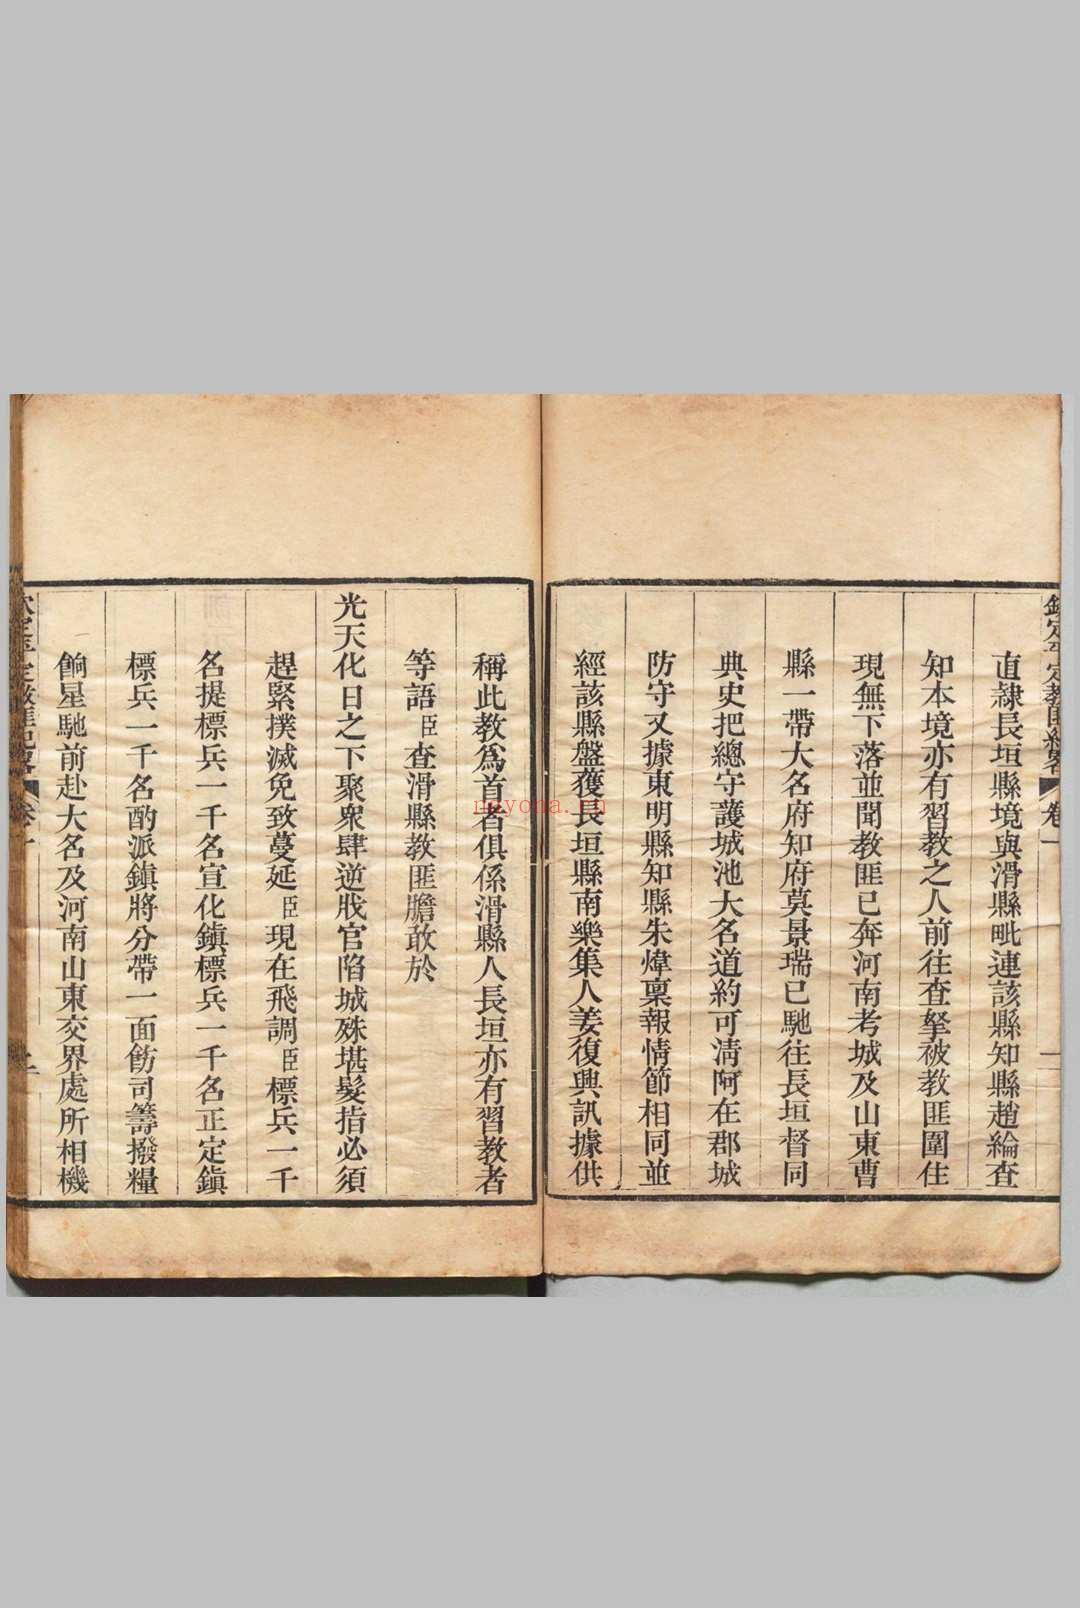 欽定平定教匪紀畧 卷一
直隷長垣縣境與滑縣毗連該縣知縣趙綸查
知本境亦有習教之人前往查拏被教匪圍住
現無下落並聞教匪已奔河南考城及山東曹
縣一帶大名府知府莫景瑞已馳往長垣督同
典史把總守護城池大名道約可淸阿在郡城
防守又據東明縣知縣朱煒稟報情節相同並
經該縣盤獲長垣縣南樂集人姜復興訊據供
稱此教爲首者俱係滑縣人長垣亦有習教者
等語臣查滑縣教匪膽敢於
光天化日之下聚衆肆逆戕官陷城殊堪髮指必須
趕緊撲滅免致蔓延臣現在飛調臣標兵一千
名提標兵一千名宣化鎭標兵一千名正定鎭
標兵一千名酌派鎭將分帶一面飭司籌撥糧
餉星馳前赴大名及河南山東交界處所相機
欽定平定教匪紀畧 卷一 二